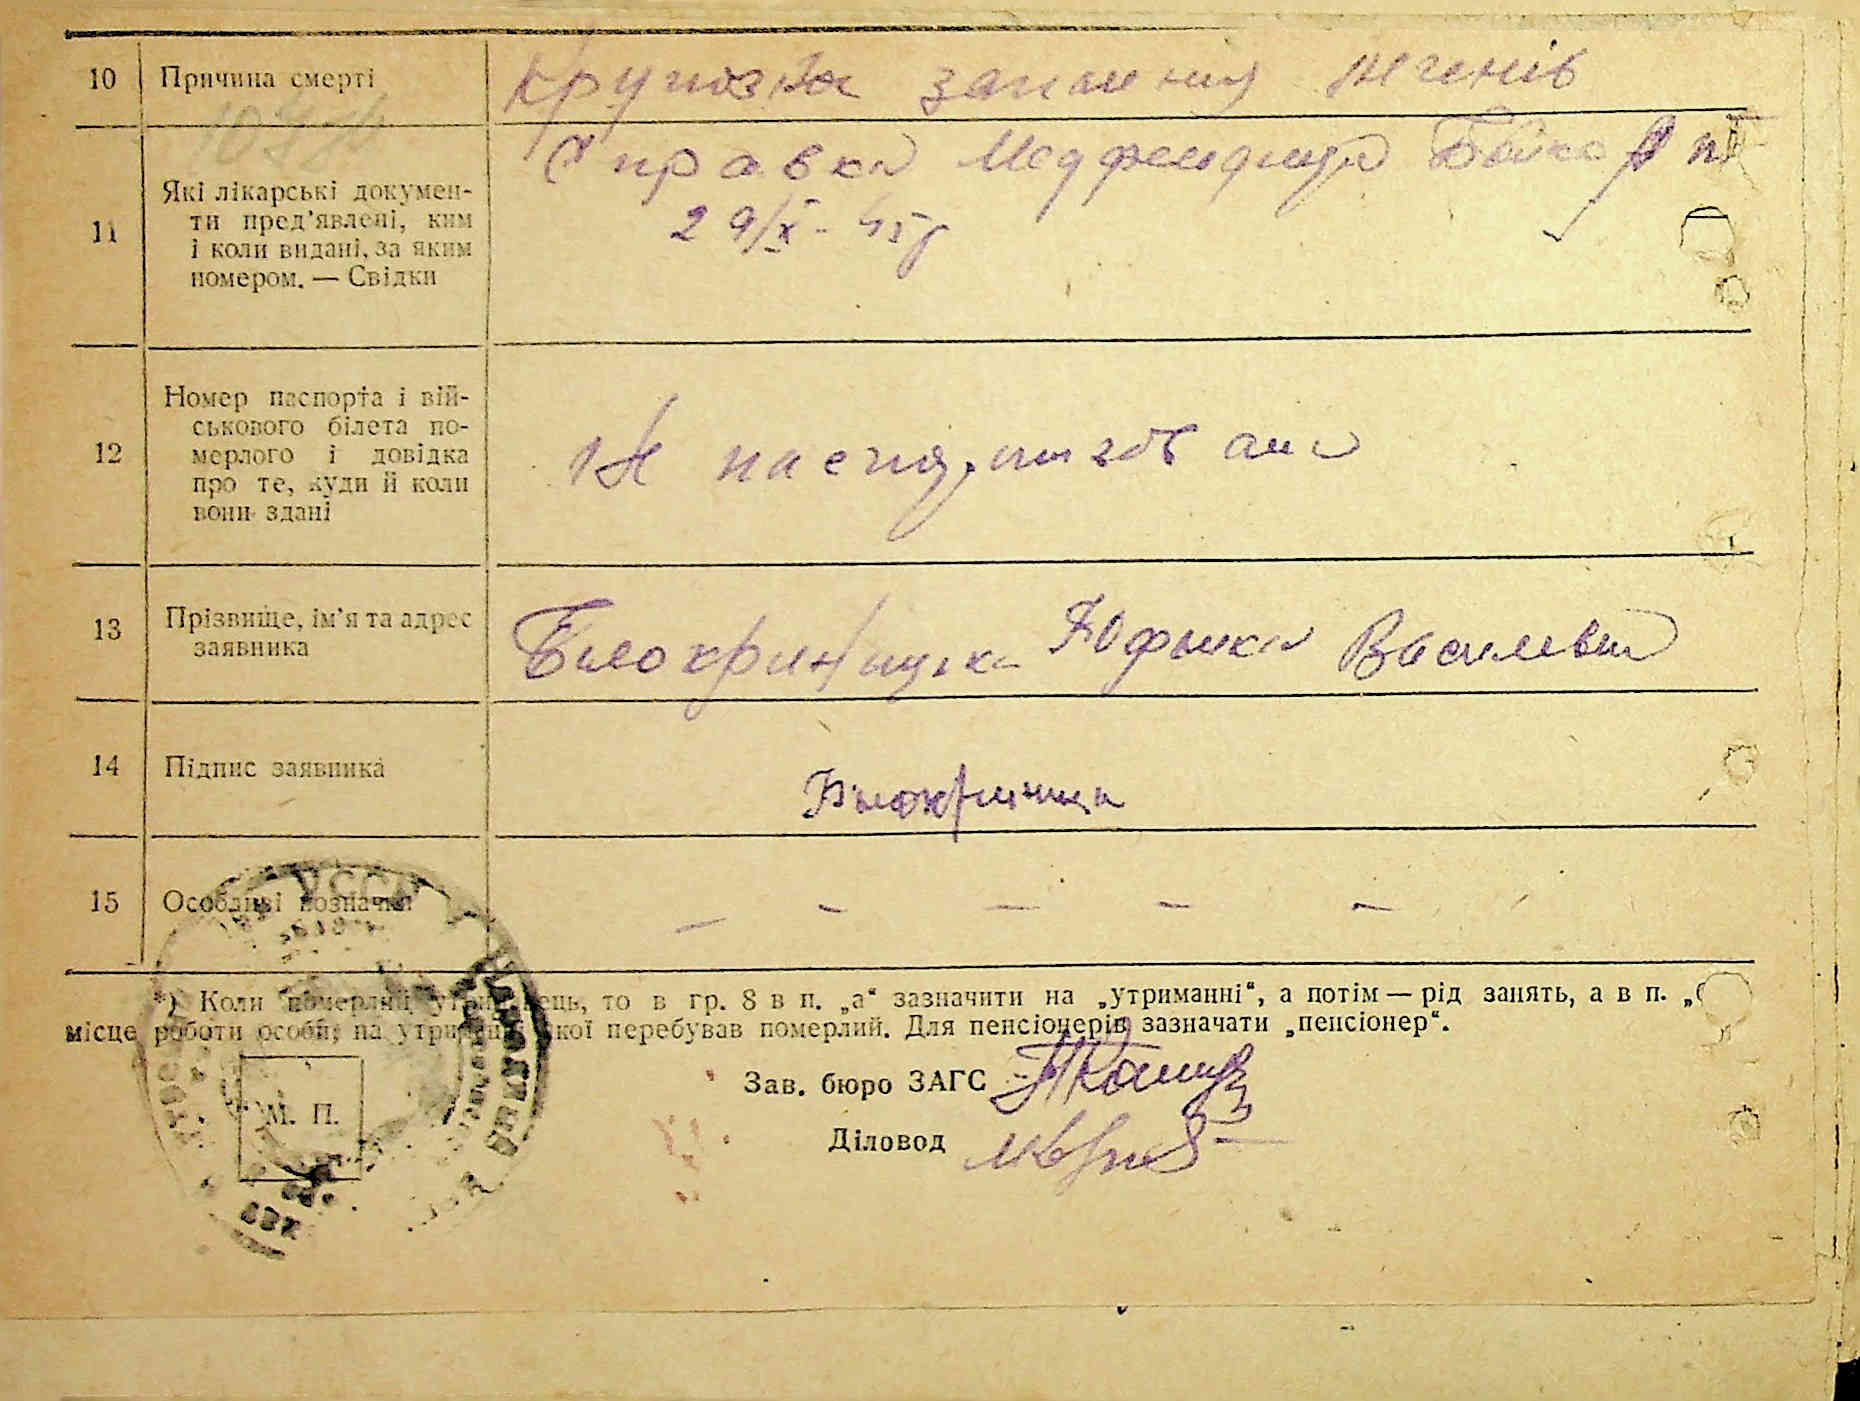 10 Причина смерті Крупозна запалення легенів
11 Які лікарські докумен-
ти пред'явлені, ким
і коли видані, за яким
номером. — Свідки
Справка Медфельдшера Бойко
29/X - 45 г
12 Номер паспорта і вій-
ськового білета по-
мерлого і довідка
про те, куди й коли
вони здані
Не паспортизована
13 Прізвище, ім'я та адрес
заявника
Білокриницька Юфимия Василевна
14 Підпис заявника Билокриница
15 Особливі позначки — — — — —
*) Коли померлий утриманець, то в гр. 8 в п. „а“ зазначити на „утриманні“, а потім — рід занять, а в п.
місце роботи особи, на утриманні якої перебував померлий. Для пенсіонерів зазначати „пенсіонер“.
Зав. бюро ЗАГС
Діловод
М. П.
УССР